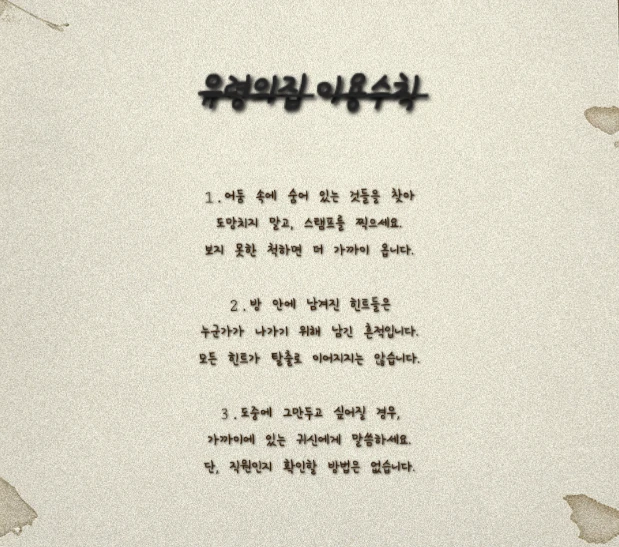 유령의집 이용수칙
1.어둠 속에 숨어 있는 것들을 찾아
도망치지 말고, 스탬프를 찍으세요.
보지 못한 척하면 더 가까이 옵니다.
2.방 안에 남겨진 힌트들은
누군가가 나가기 위해 남긴 흔적입니다.
모든 힌트가 탈출로 이어지지는 않습니다.
3.도중에 그만두고 싶어질 경우,
가까이에 있는 귀신에게 말씀하세요.
단, 직원인지 확인할 방법은 없습니다.